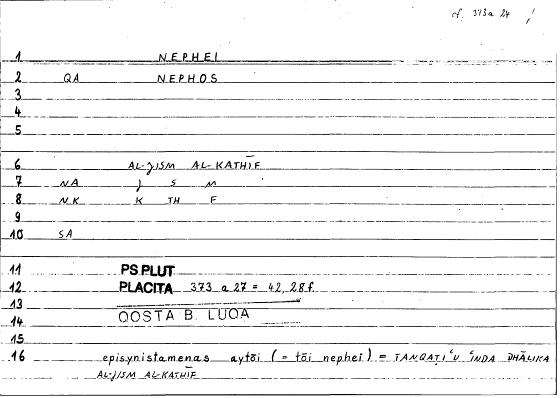 cf. 373a 24 /
1 NEPHEI
2 QA NEPHOS
3
4
5
6 AL-JISM AL-KATHĪF
7 NA J S M
8 NK K TH F
9
10 SA
11 PS PLUT
12 PLACITA 373 a 27 = 42, 28 f.
13
14 QOSTA B. LUQA
15
16 episynistamenas aytōi (= tōi nephei) = TANQAṬI ʿU ʿINDA DHĀLIKA
AL-JISM AL-KATHĪF